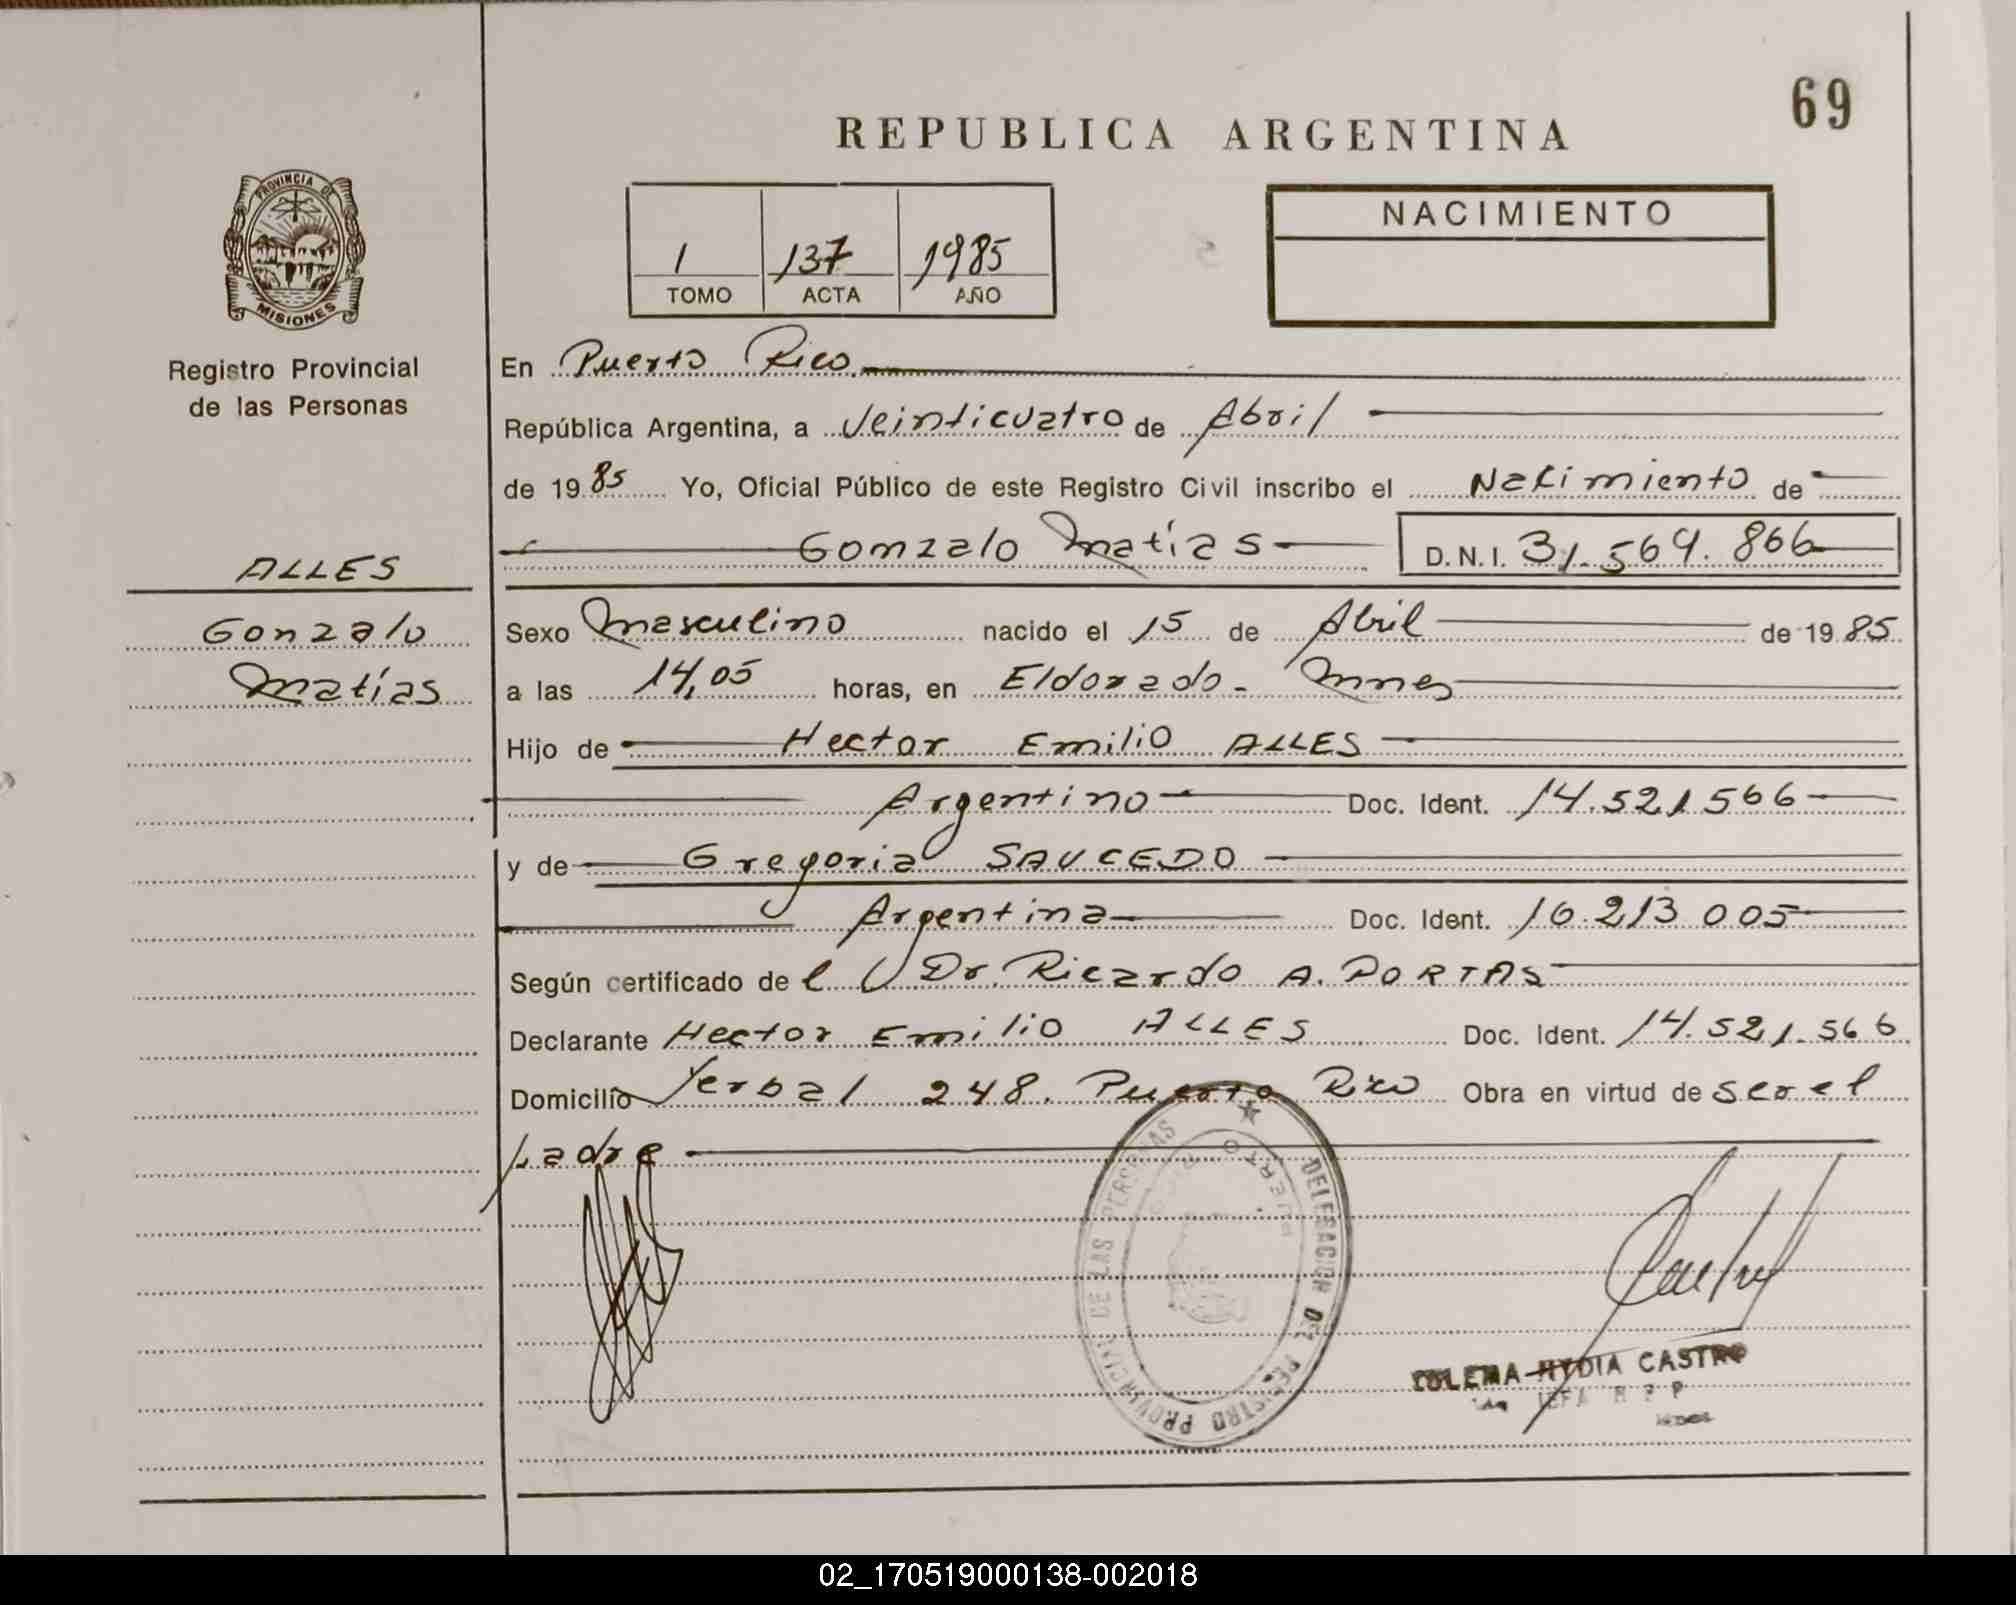 69
REPUBLICA ARGENTINA
PROVINCIA DE
MISIONES
Registro Provincial
de las Personas
1 137 1985
TOMO ACTA AÑO
NACIMIENTO
En Puerto Rico
República Argentina, a Veinticuatro de Abril
de 19 85 Yo, Oficial Público de este Registro Civil inscribo el Nacimiento de
Gonzalo Matías D.N.I. 31.569.866
ALLES
Gonzalo
Matías
Sexo Masculino nacido el 15 de Abril de 19 85
a las 14,05 horas, en Eldorado - Mnes
Hijo de Hector Emilio ALLES
Argentino Doc. Ident. 14.521.566
y de Gregoria SAUCEDO
Argentina Doc. Ident. 16.213.005
Según certificado de l Dr. Ricardo A. PORTAS
Declarante Hector Emilio ALLES Doc. Ident. 14.521.566
Domicilio Yerbal 248. Puerto Rico Obra en virtud de ser el
Padre
DELEGACION DEL REGISTRO PROVINCIAL DE LAS PERSONAS
PUERTO
NYDIA CASTRO
02_170519000138-002018